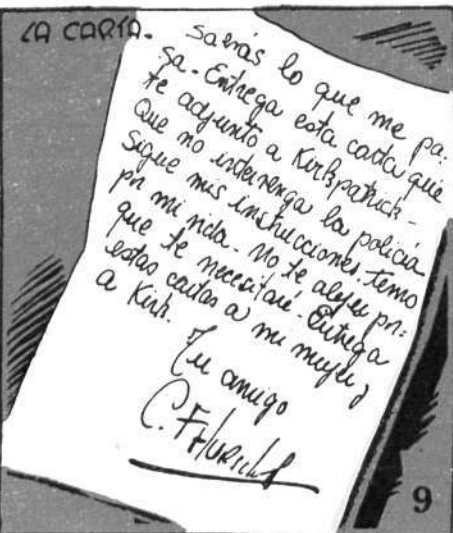 LA CARTA.
Sabrás lo que me pa-
sa-Entrega esta carta que
te adjunto a Kirkpatrick-
Que no intervenga la policía
Sigue mis instrucciones. temo
por mi vida. No te alejes por-
que te necesitaré-Entrega
estas cartas a mi mujer y
a Kirk.
Tu amigo
C.
9